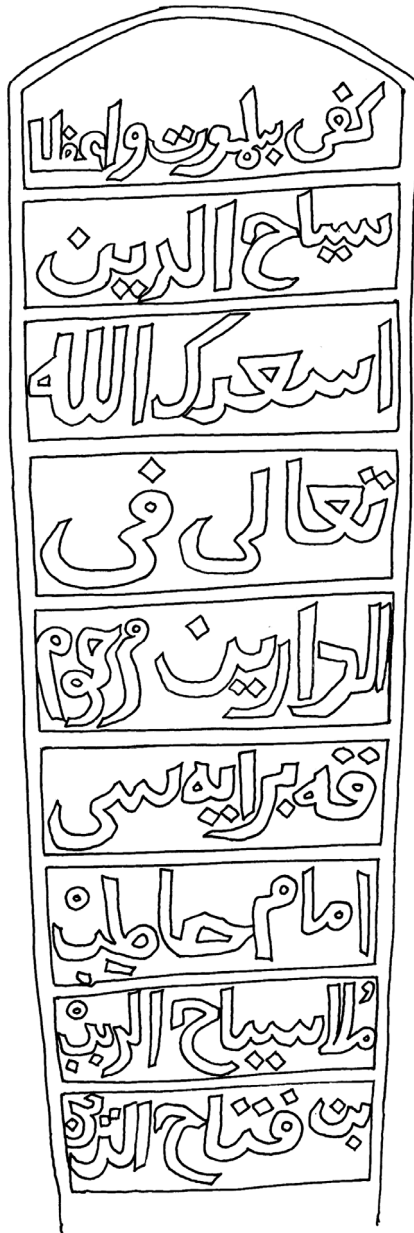 كفى بالموت واعظا
سياح الدين
اسعدك الله
تعالى فى
الدارين مرحوم
قه برايه سى
امام خاطب
ملا سياح الدين
بن فتاح الدين